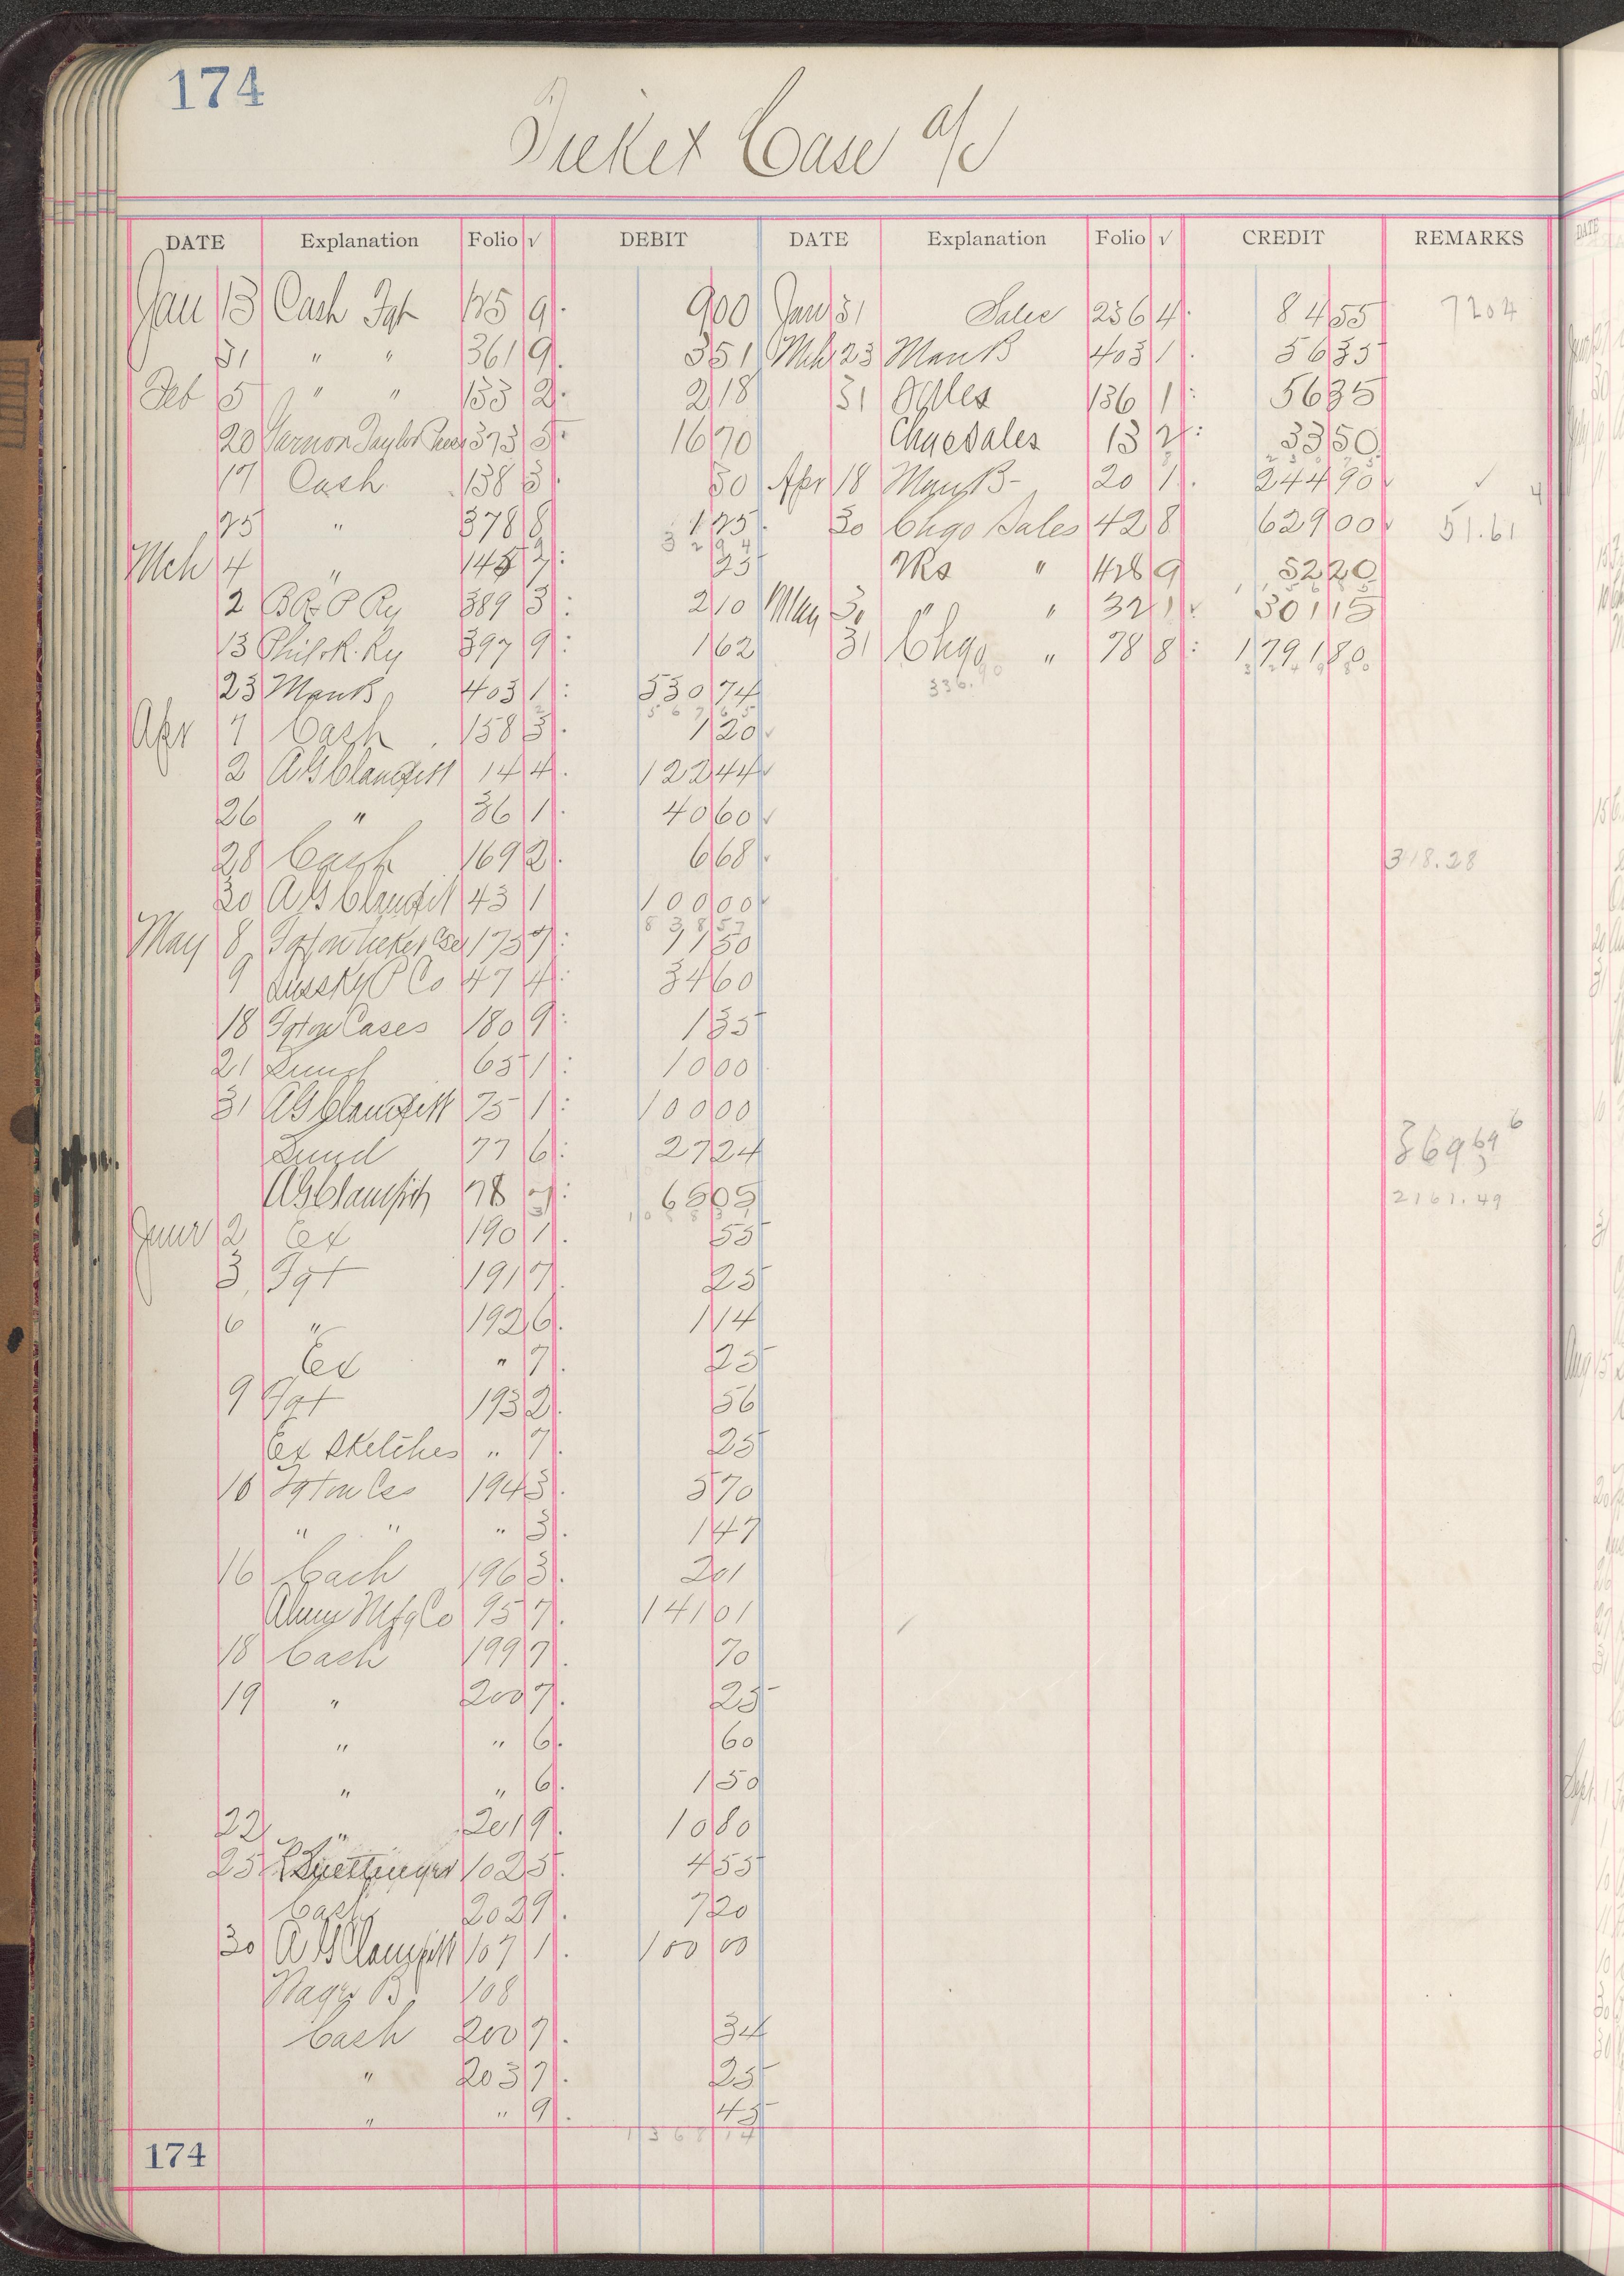 174
Ticket Case a/c
DATE Explanation Folio √ DEBIT DATE Explanation Folio √ CREDIT REMARKS
Jan 13 Cash Fgt 125 9 9 00 Jan 31 Sales 236 4 84 55 7204
31 " " 361 9 3 51 Mch 23 Man B 403 1 56 35
Feb 5 " " 133 2 2 18 31 Sales 136 1 56 35
20 Vernon Taylor 373 5 16 70 Chgo Sales 13 2 33 50
17 Cash 138 3 50 Apr 18 Man B 20 1 244 90 √ √
25 " 378 8 1 25 30 Chgo Sales 42 8 629 00 √ 51.61
32 94
Mch 4 " 145 7 25 " 428 9 52 20
2 B R & P Ry 389 3 2 10 May 30 " " 32 1 √ 301 15
13 Phil & R. Ry 397 9 1 62 31 Chgo " 78 8 1791 80
23 Man B 403 1 530 74 336.90
567 65
Apr 7 Cash 158 3 1 20 √
2 A G Clampitt 14 4 122 44 √
26 " 36 1 40 60 √
28 Cash 169 2 6 68 √ 318.28
30 A G Clampitt 43 1 100 00 √
838 57
May 8 Fgt on Ticket Cse 175 7 11 50
9 Lussky P Co 47 4 34 60
18 Fgt on Cases 180 9 1 35
21 Lund 65 1 10 00
31 A G Clampitt 75 1 100 00
Lund 77 6 27 24 369 69
A G Clampitt 78 7 65 05 2161.49
June 2 Ex 190 1 55
3 Fgt 191 7 25
6 " 192 6 1 14
Ex " 7 25
9 Fgt 193 2 56
Ex Sketches " 7 25
10 Fgt on Cses 194 3 5 70
" " " 3 1 47
16 Cash 196 3 2 01
Mfg Co 95 7 141 01
18 Cash 199 7 70
19 " 200 7 25
" " 6 60
" " 6 1 50
22 " 201 9 10 80
25 102 5 4 55
Cash 202 9 7 20
30 A G Clampitt 107 1 100 00
B 108
Cash 200 7 34
" 203 7 25
" " 9 45
1368 14
174